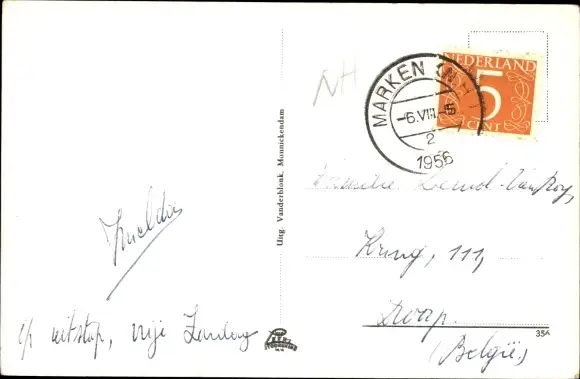 NH
MARKEN (N.H.)
-6.VIII.-5
2
1956
NEDERLAND
5
CENT
Uitg. Vanderblonk, Monnickendam
Imelda
Familie
Kring, 111,
(België.)
op uitstap, vrije Zondag
35A